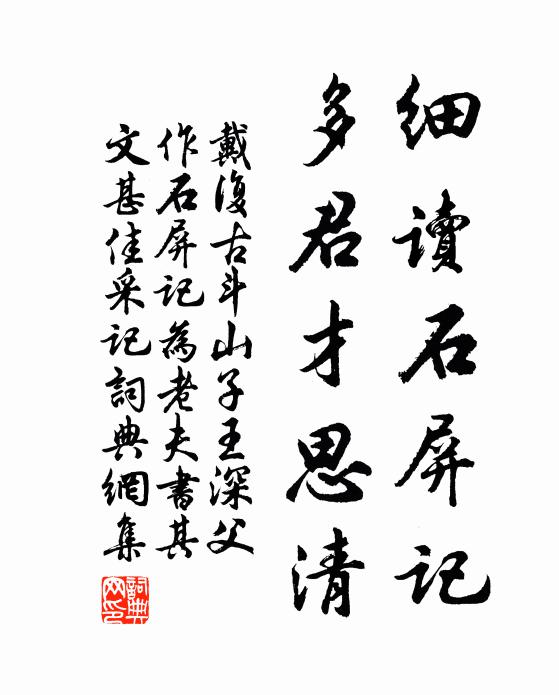 细讀石屏记
多君才思清
戴復古斗山子王深父
作石屏记為老夫書其
文甚佳采记詞典網集
詞典網印